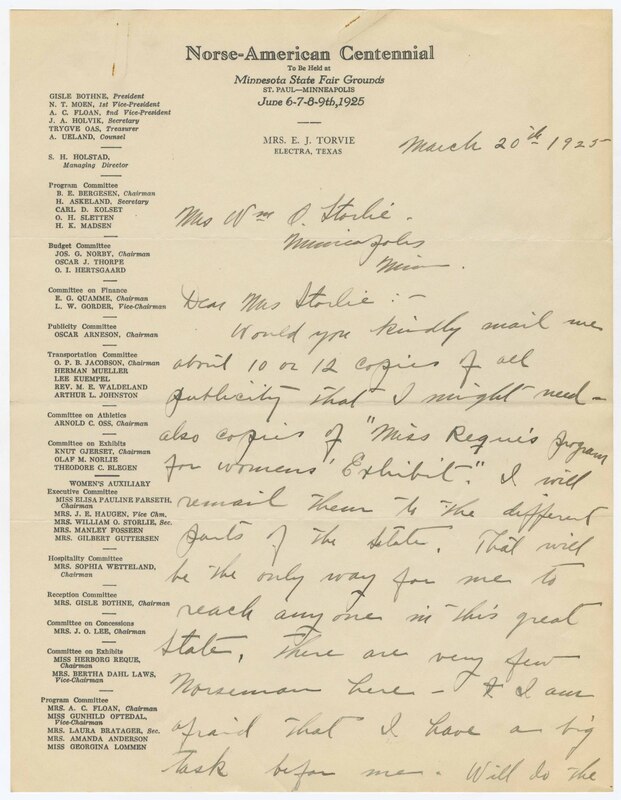 Norse-American Centennial
To Be Held at
Minnesota State Fair Grounds
ST. PAUL—MINNEAPOLIS
June 6-7-8-9th, 1925
MRS. E. J. TORVIE
ELECTRA, TEXAS
GISLE BOTHNE, President
N. T. MOEN, 1st Vice-President
A. C. FLOAN, 2nd Vice-President
J. A. HOLVIK, Secretary
TRYGVE OAS, Treasurer
A. UELAND, Counsel
S. H. HOLSTAD,
Managing Director
Program Committee
B. E. BERGESEN, Chairman
H. ASKELAND, Secretary
CARL D. KOLSET
O. H. SLETTEN
H. K. MADSEN
Budget Committee
JOS. G. NORBY, Chairman
OSCAR J. THORPE
O. I. HERTSGAARD
Committee on Finance
E. G. QUAMME, Chairman
L. W. GORDER, Vice-Chairman
Publicity Committee
OSCAR ARNESON, Chairman
Transportation Committee
O. P. B. JACOBSON, Chairman
HERMAN MUELLER
LEE KUEMPEL
REV. M. E. WALDELAND
ARTHUR L. JOHNSTON
Committee on Athletics
ARNOLD C. OSS, Chairman
Committee on Exhibits
KNUT GJERSET, Chairman
OLAF M. NORLIE
THEODORE C. BLEGEN
WOMEN'S AUXILIARY
Executive Committee
MISS ELISA PAULINE FARSETH,
Chairman
MRS. J. E. HAUGEN, Vice Chm.
MRS. WILLIAM O. STORLIE, Sec.
MRS. MANLEY FOSSEEN
MRS. GILBERT GUTTERSEN
Hospitality Committee
MRS. SOPHIA WETTELAND,
Chairman
Reception Committee
MRS. GISLE BOTHNE, Chairman
Committee on Concessions
MRS. J. O. LEE, Chairman
Committee on Exhibits
MISS HERBORG REQUE,
Chairman
MRS. BERTHA DAHL LAWS,
Vice-Chairman
Program Committee
MRS. A. C. FLOAN, Chairman
MISS GUNHILD OFTEDAL,
Vice-Chairman
MRS. LAURA BRATAGER, Sec.
MRS. AMANDA ANDERSON
MISS GEORGINA LOMMEN
March 20th 1925
Mrs Wm O. Storlie.
Minneapolis
Minn.
Dear Mrs Storlie:-
Would you kindly mail me
about 10 or 12 copies of all
publicity that I might need-
also copies of "Miss Reque's program
for womens' Exhibit." I will
remail them to the different
parts of the state. That will
be the only way for me to
reach anyone in this great
State, There are very few
Norseman here - & I am
afraid that I have a big
task before me. Will do the